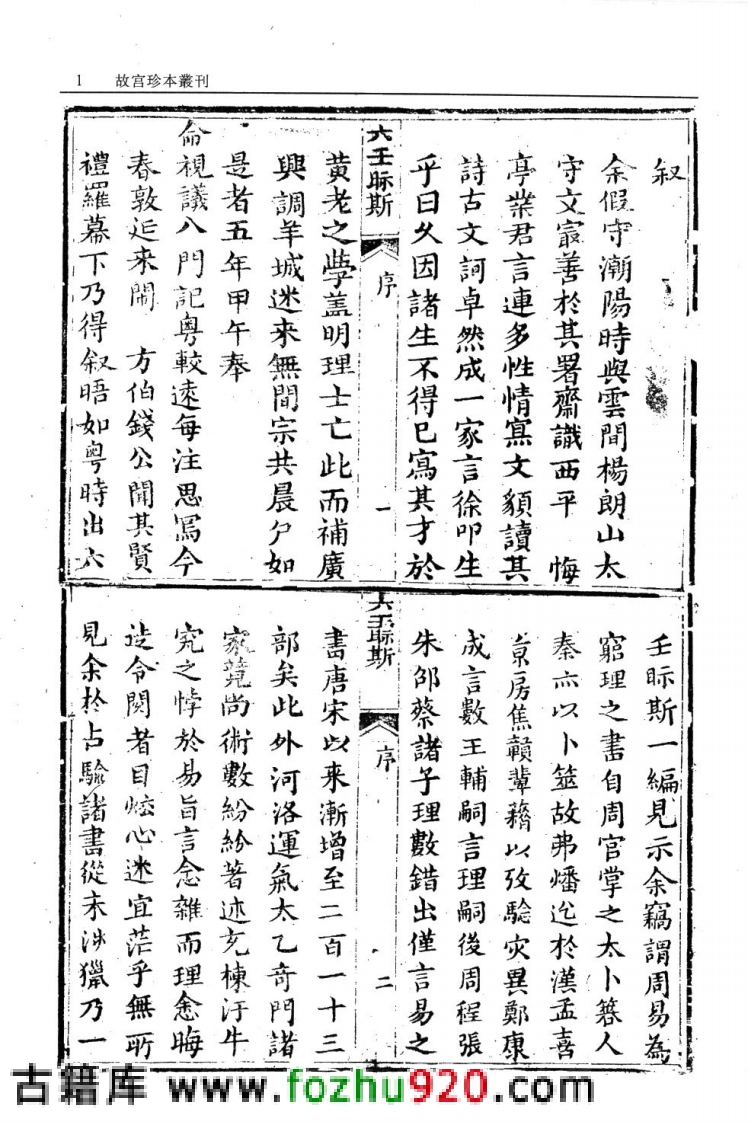 1 故宫珍本叢刊
叙
余假守潮陽時與雲間楊朗山太
守文宴善於其署齋識西平 悔
亭業君言連多性情寫文頟讀其
詩古文訶卓然成一家言徐叩生
乎曰久因諸生不得已寫其才於
六壬眎斯 序 一
黄老之學蓋明理士亡此而補廣
興調羊城迷来無間宗共晨夕如
是者五年甲午奉
命視議八門記粤較速每注思寫今
春敦迮来閙 方伯錢公開其賢
禮羅幕下乃得叙晤如粤時出六
六壬眎斯 序 二
壬眎斯一編見示余竊謂周易為
窮理之書自周官掌之太卜簭人
秦亦以卜筮故弗燔迄於漢孟喜
京房焦贛輩籍以攷驗灾異鄭康
成言數王輔嗣言理嗣後周程張
朱邵蔡諸子理數錯出僅言易之
書唐宋以来漸增至二百一十三
部矣此外河洛運氣太乙奇門諸
家競尚術數紛紛著述充棟汙牛
究之悖於易旨言念雜而理念晦
迻令閱者目炫心迷宜茫乎無所
見余於占驗諸書從未涉獵乃一
古籍库 www.fozhu920.com